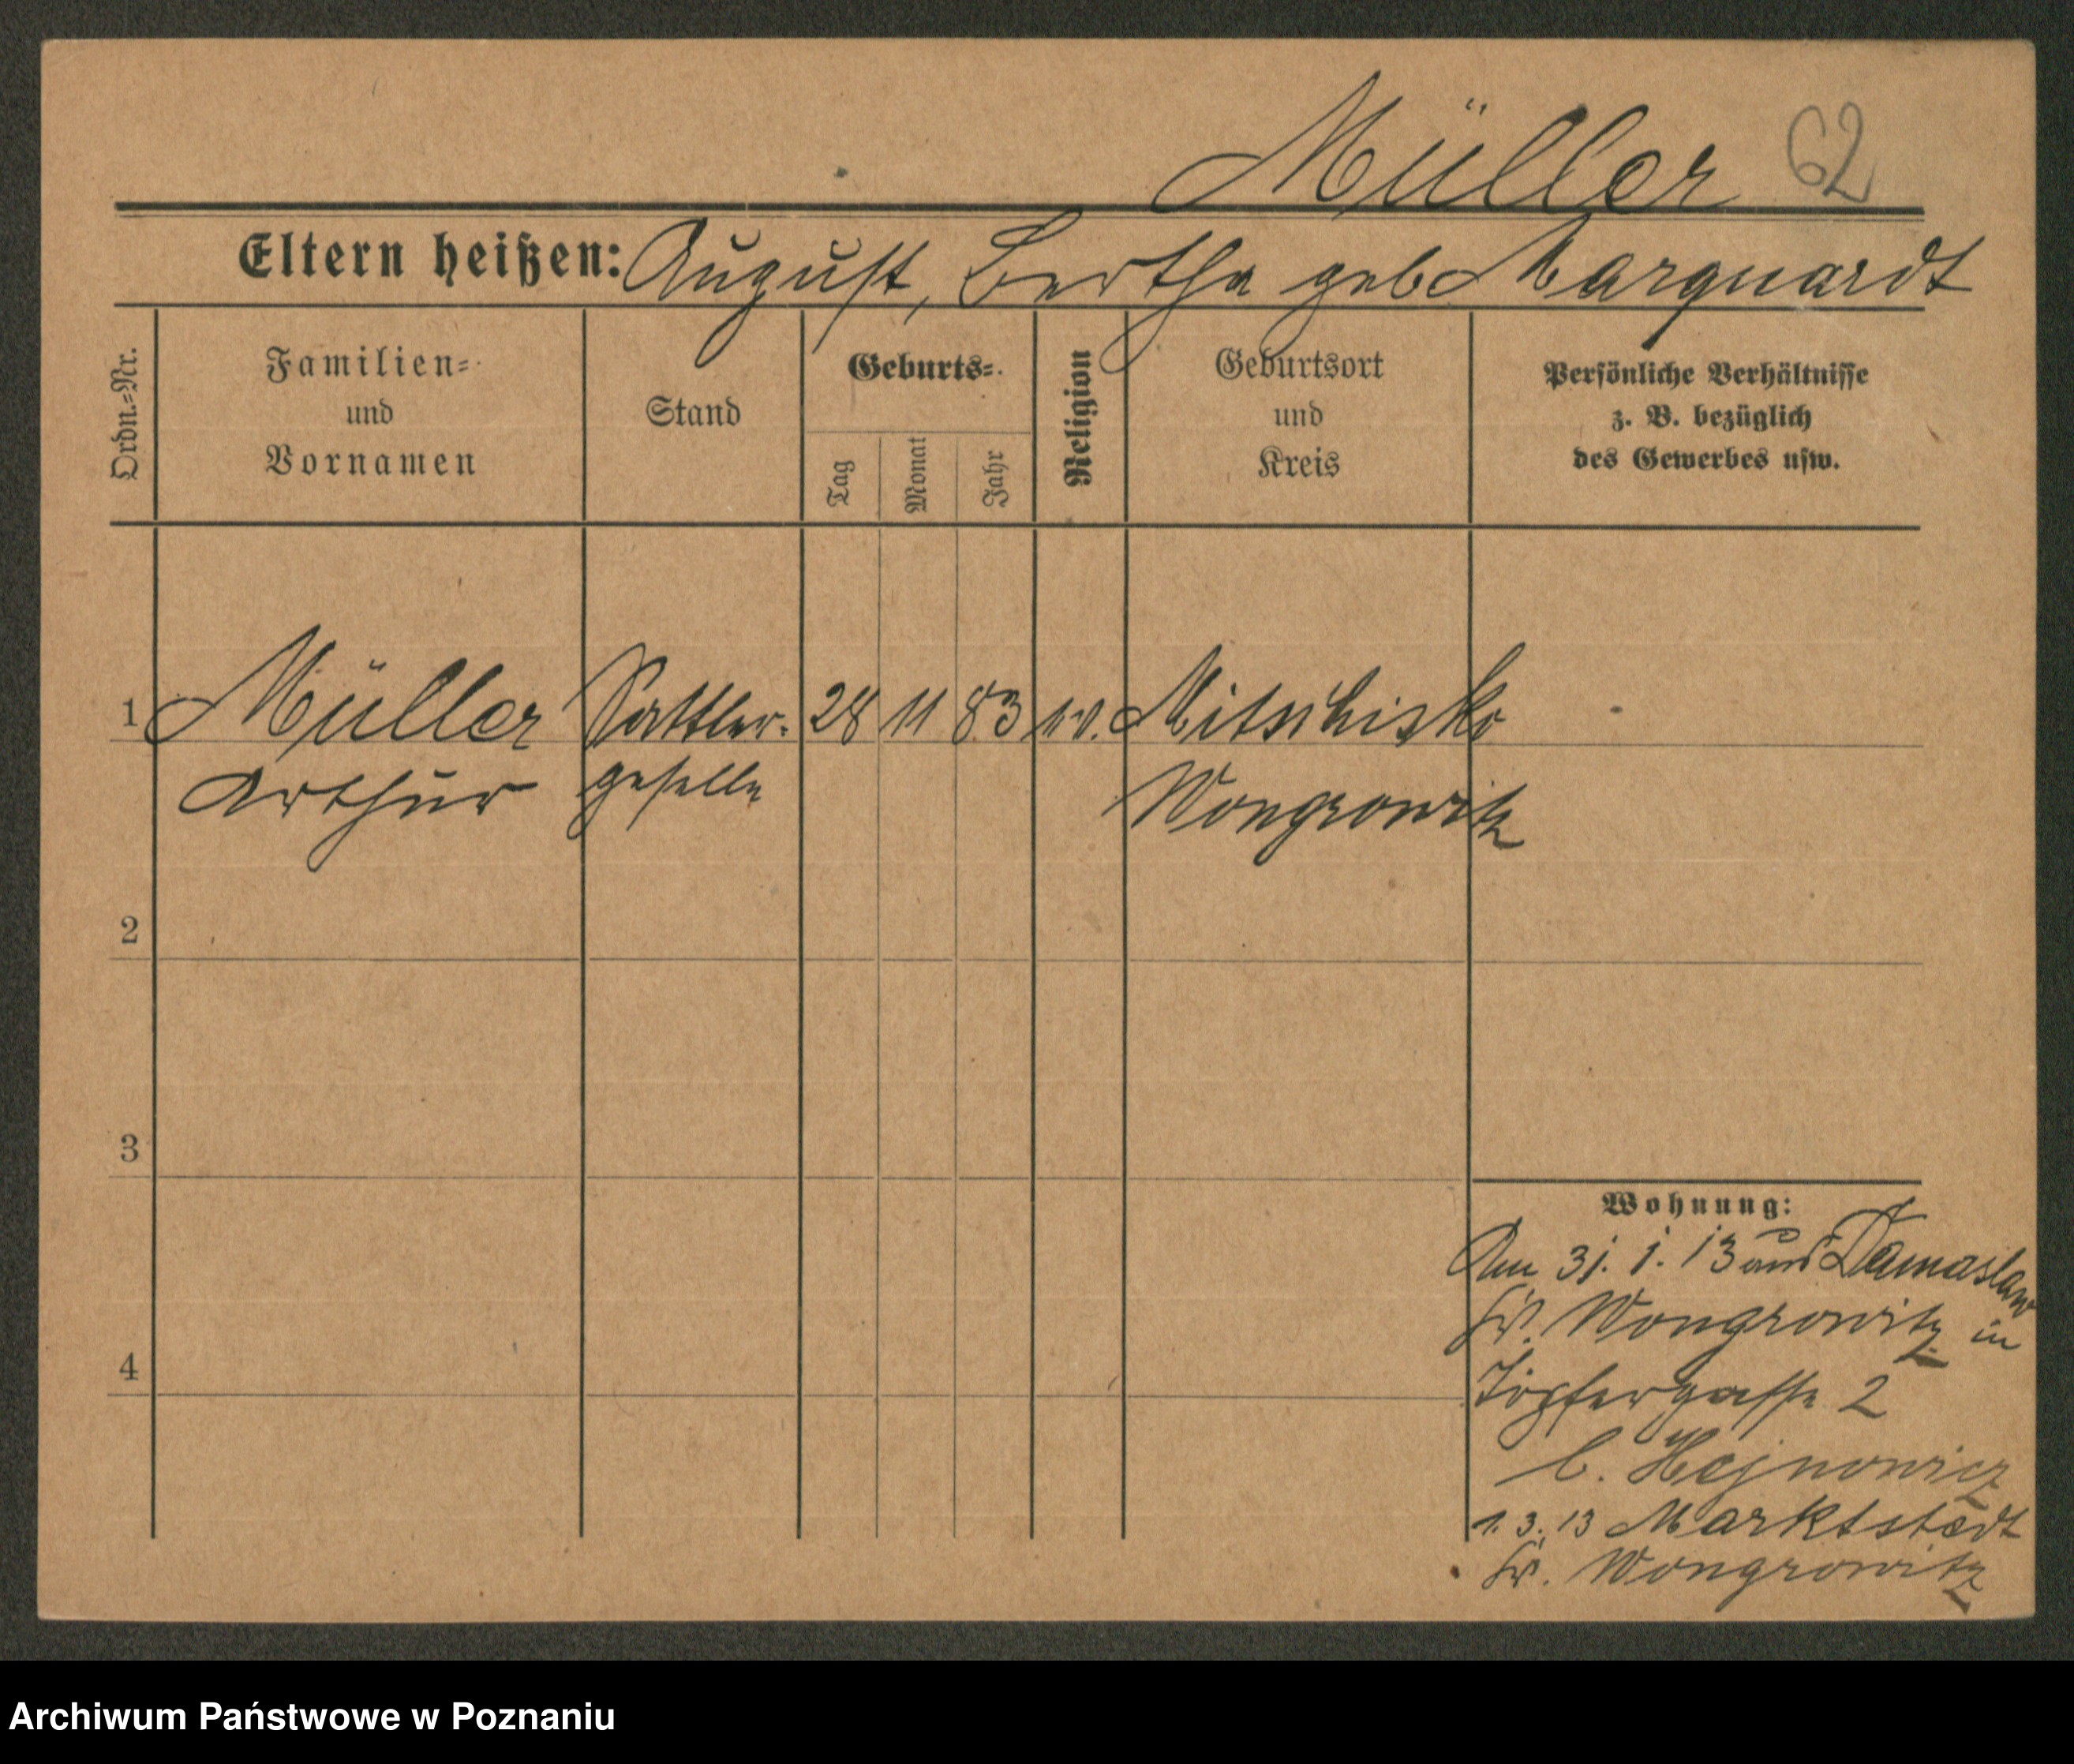 Müller 62
Eltern heißen: August, Bertha geb. Marquardt
Ordn.=Nr.
Familien=
und
Vornamen
Stand
Geburts=
Tag
Monat
Jahr
Religion
Geburtsort
und
Kreis
Persönliche Verhältnisse
z. B. bezüglich
des Gewerbes usw.
1 Müller Sattler- 28 11 83 ev. Mitschisko
Arthur geselle Wongrowitz
2
3
4
Wohnung:
Am 31. 1. 13 aus Damaslaw
Kr. Wongrowitz in
Töpfergasse 2
b. Hejnowicz
1. 3. 13 Marktstädt
Kr. Wongrowitz
Archiwum Państwowe w Poznaniu